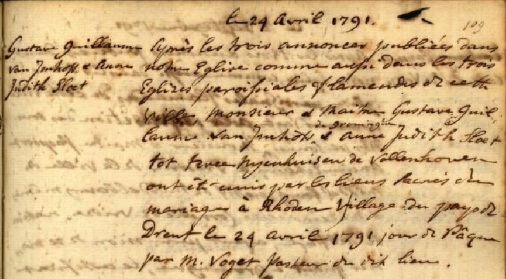 le 24 Avril 1791.
109
Gustave Guillaume
van Imhoff & Anna
Judith Sloet
Après les trois annonces publiées dans
notre Eglise comme aussi dans les trois
Eglises paroissiales flamendes de cette
ville, Monsieur & Maitre Gustave Guil-
laume van Imhoff, de Groningue & Anne Judith Sloet
tot twee Nyenhuisen de Vollenhoven
ont été unis par les liens sacrés du
mariages à Rhoden Village du pays de
Drent le 24 avril 1791 jour de Pâque
par M. Voget Pasteur du dit lieu.